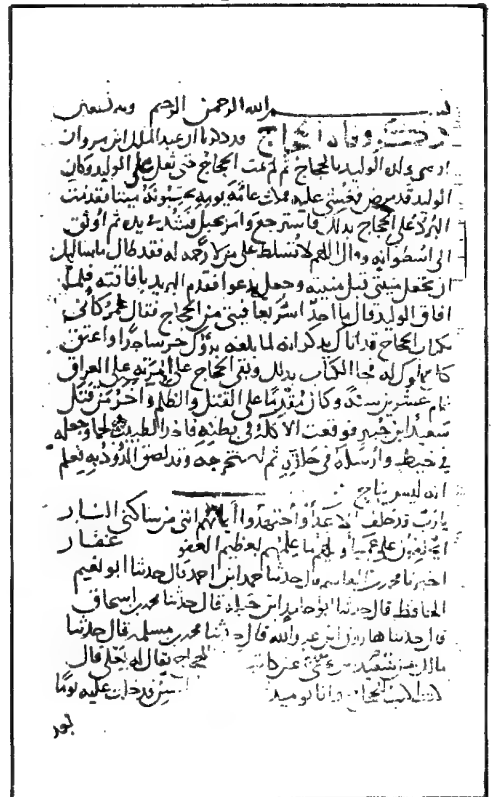 بسم الله الرحمن الرحيم وبه نستعين
ذكر وفاة الحجاج قد ذكرنا ان عبد الملك ابن مروان
اوصى ولده الوليد بالحجاج ثم لم يمت الحجاج حتى ثقل على الوليد وكان
الوليد قد مرض فغشي عليه فمكث عامة يومه يحسبونه ميتا فقدمت
البرد على الحجاج بذلك فاسترجع وامر بحبل فشد في يده ثم اوثق
الى اسطوانة وقال اللهم لا تسلط علي من لا رحمة له فقد طال ما سالتك
ان تجعل منيتي قبل منيته وجعل يدعوا فقدم البريد بافاقته فلما
افاق الوليد قال ما احد اسر بعافيتي من الحجاج فقال عمر كاني
بكتاب الحجاج قد اتاك يذكر انه لما بلغه برؤك خر ساجدا واعتق
كل مملوك له فجا الكتاب بذلك وبقي الحجاج على امرته على العراق
تمام عشرين سنة وكان مقدما على القتل والظلم واخر من قتل
سعيد ابن جبير فوقعت الاكلة في بطنه فاخذ الطبيب لحما وجعله
في خيط وارسله في حلقه ثم استخرجه وقد لصق الدود به فعلم
انه ليس بناج
يا رب قد حلف الاعداء واجتهدوا ايمانهم انني من ساكني النار
ايحلفون على عميا ويحهم ما علمهم بعظيم العفو غفار
اخبرنا محمد بن القاسم قال حدثنا حمد ابن احمد قال حدثنا ابو نعيم
الحافظ قال حدثنا ابو حامد ابن جبلة قال حدثنا محمد بن اسحاق
قال حدثنا هارون ابن عبد الله قال حدثنا محمد بن مسلمة قال حدثنا
مالك عن سعيد بن يحيى عن كاتب الحجاج يقال له يعلى قال
كنت اكتب للحجاج وانا يومئذ السن فدخلت عليه يوما
بعد